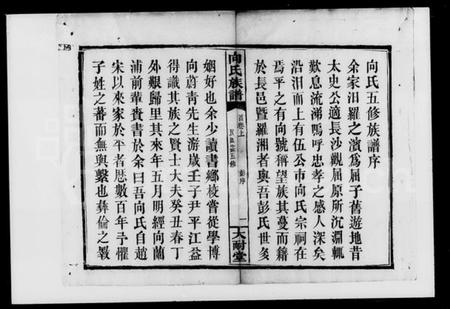 向氏五修族譜序
余家汨羅之濱為屈子舊遊地昔
太史公適長沙觀屈原所沉淵輒
歎息流涕嗚呼忠孝之感人深矣
沿汨而上有伍公市向氏宗祠在
焉平之有向號稱望族其蔓而籍
於長邑暨羅湘者與吾彭氏世多
向氏族譜
首卷上
彭序
一
大耐堂
姻好也余少讀書鄉校嘗從學博
向蔚青先生游歲壬子尹平江益
得識其族之賢士大夫癸丑春丁
外艱歸里其來年五月明經向蘭
浦前輩賚書於余曰吾向氏自趙
宋以來家於平者歷數百年予懼
子姓之蕃而無與繫也彝倫之斁